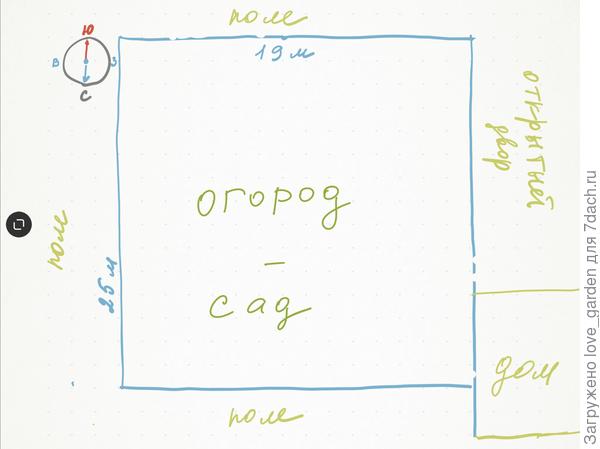 поле
19 м
Ю
В
З
С
открытый
двор
огород
—
сад
поле
25 м
дом
поле
Загружено love_garden для 7dach.ru